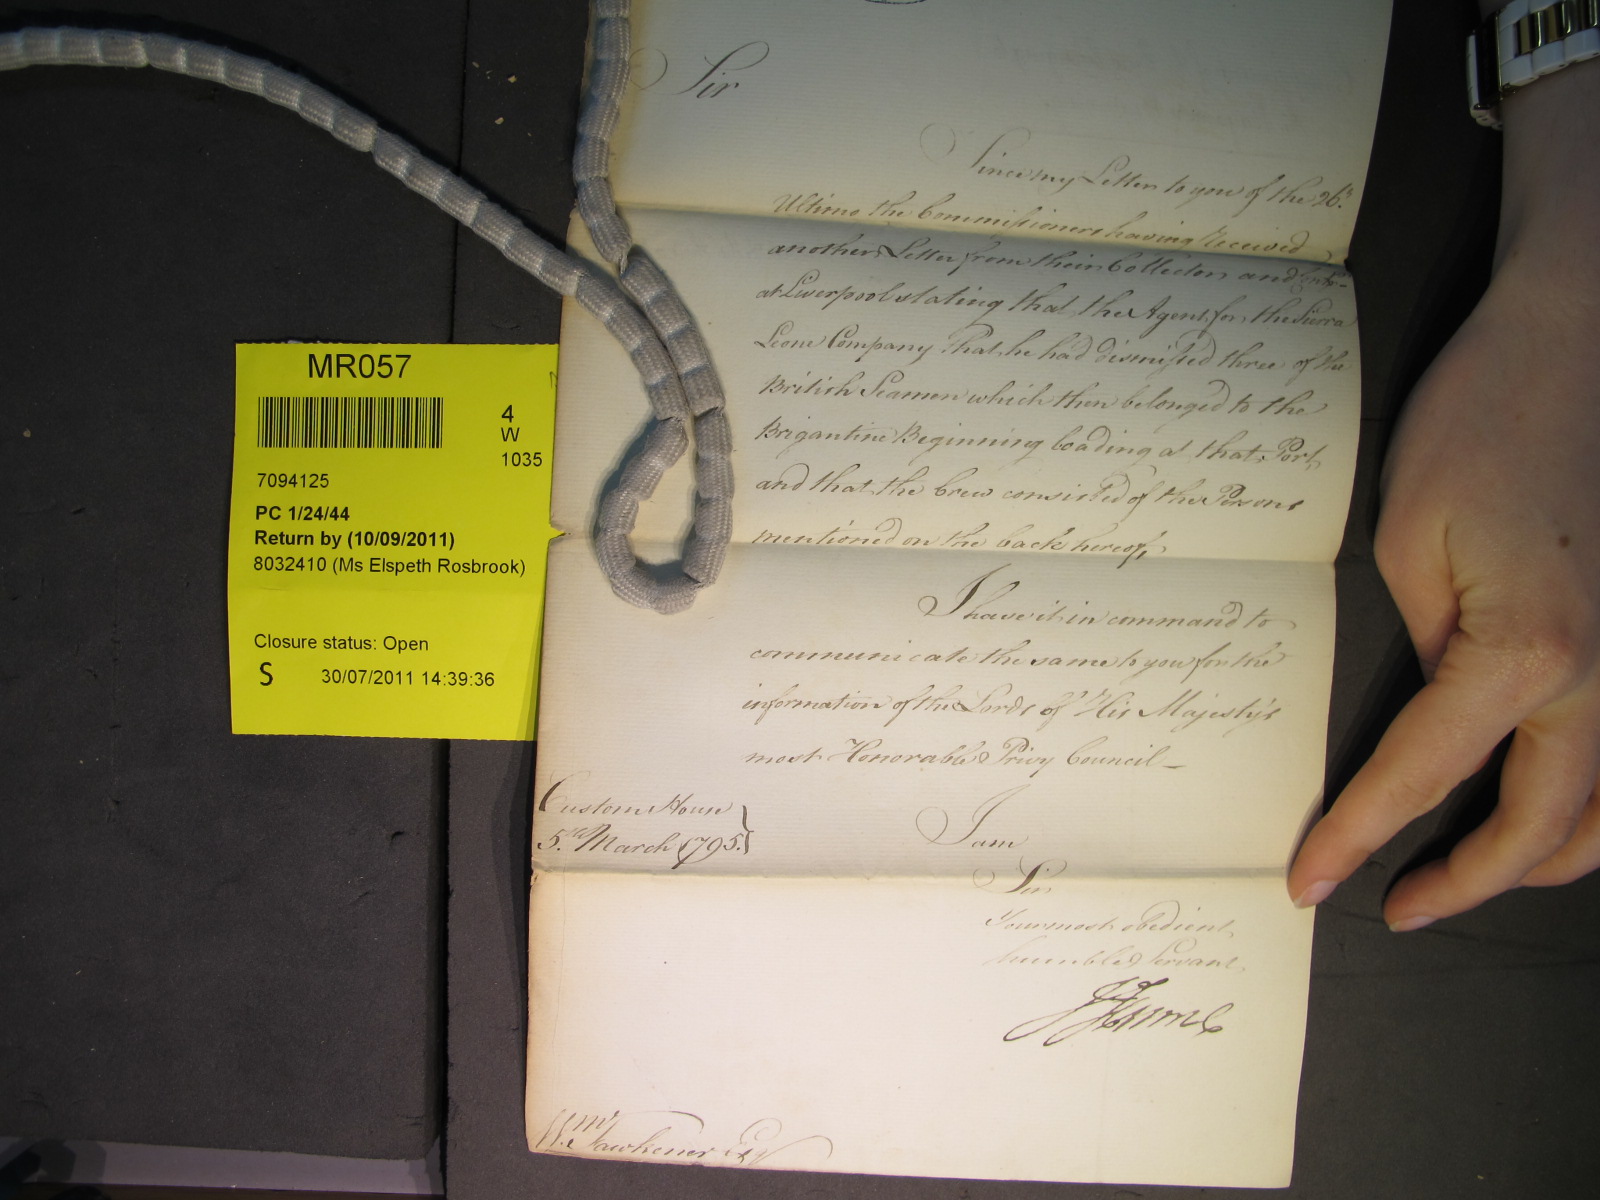 MR057
4
W
1035
7094125
PC 1/24/44
Return by (10/09/2011)
8032410 (Ms Elspeth Rosbrook)
Closure status: Open
S 30/07/2011 14:39:36
Sir
Since my Letter to you of the 26th
Ultimo the Commissioners having Received
another Letter from their Collector and
at Liverpool stating that the Agent for the Sierra
Leone Company that he had dismissed three of the
British Seamen which then belonged to the
Brigantine Beginning loading at that Port,
and that the Crew consisted of the Persons
mentioned on the back hereof,
I have it in command to
communicate the same to you for the
information of the Lords of His Majesty's
most Honorable Privy Council—
Custom House
5th March 1795.
I am
Sir
Your most obedient,
humble Servant,
Wm Fawkener Esq